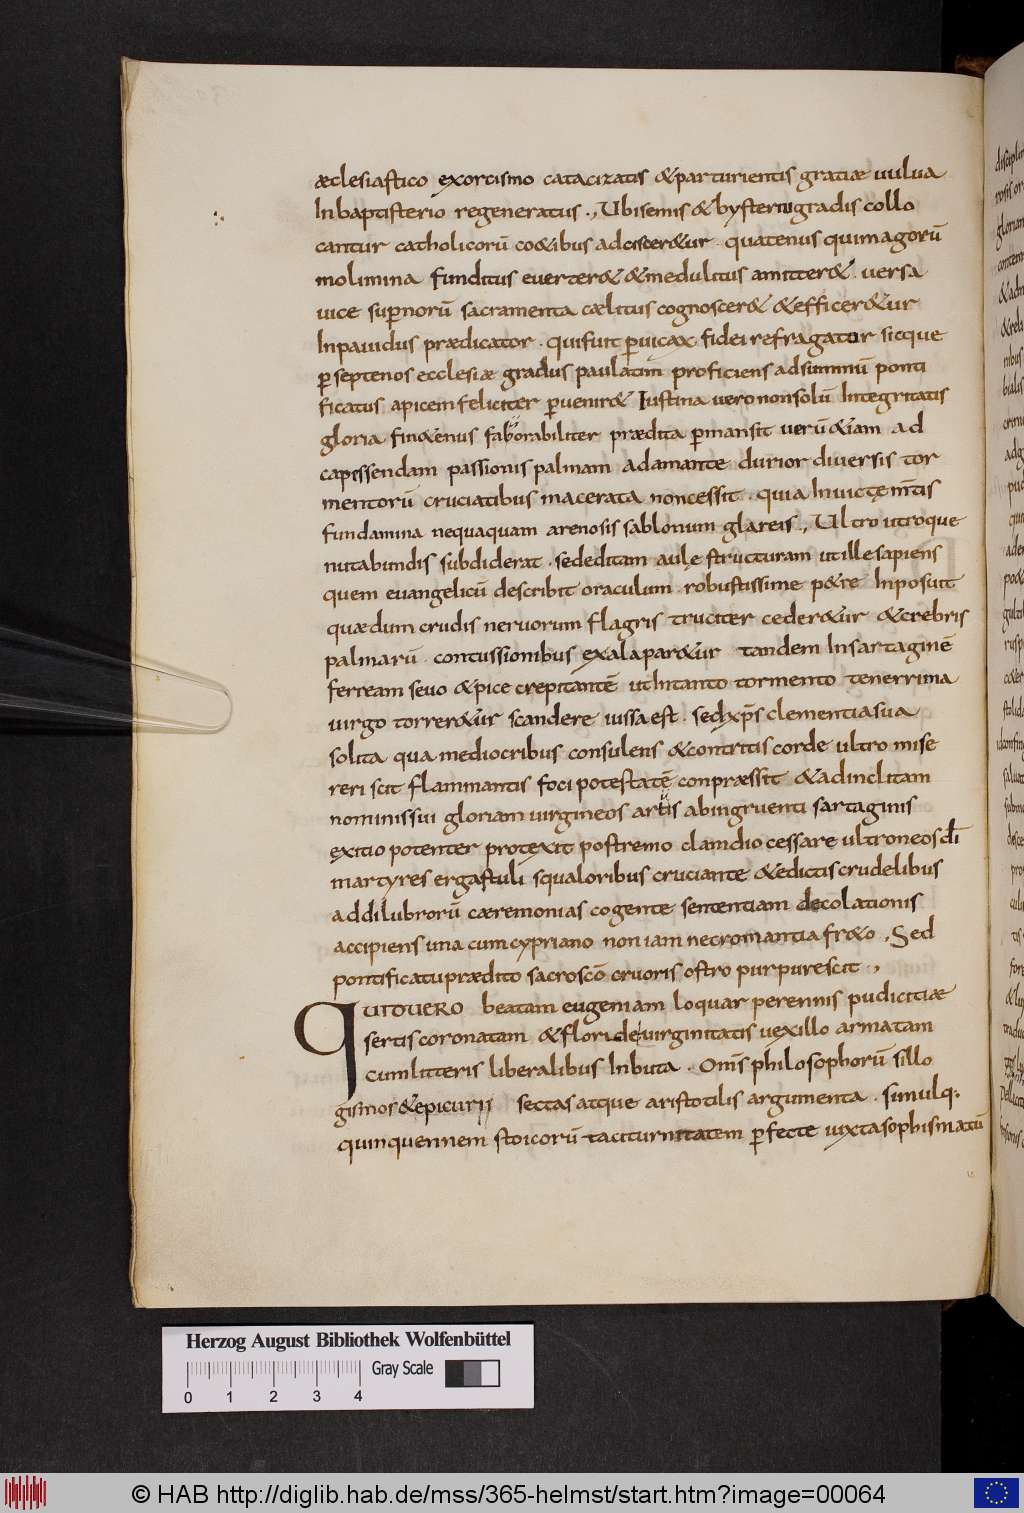 æclesiastico exorcismo catacizatis & parturientis gratiæ uulua
In baptisterio regeneratus ., Ubi semis & byster nugradis collo
cantur catholicorū co&ibus adciscer&ur . quatenus qui magorū
molimina funditus euerter& & medulitus amitter& . versa
uice supernorū sacramenta cælitus cognoscer& & efficer&ur
Inpauidus prædicator . qui fuit puicax fidei refragator sicque
p septenos ecclesiæ gradus paulatim proficiens ad summū ponti
ficatus apicem feliciter puenir& Iustina uero non solū Integritatis
gloria fin&enus faborabiliter prædita pmansit uerū &iam ad
capessendam passionis palmam adamante durior diuersis tor
mentorū cruciatibus macerata non cessit . quia Inuictę mtis
fundamina nequaquam arenosis sablonum glareis ., Ultro utroque
nutabundis subdiderat . sed editam aulę structuram ut ille sapiens
quem euangelicū describit oraculum . robustissime p&re Inposuit
quæ dum crudis neruorum flagris truciter ceder&ur & crebris
palmarū . contussionibus exalapar&ur tandem In sartaginē
ferream seuo & pice crepitantē ut In tanto tormento tenerrima
uirgo torrer&ur scandere iussa est . sed xps clementia sua
solita qua mediocribus consulens & contritis corde ultro mise
reri scit flammantis foci potestatē conpræssit & ad inclitam
nominis sui gloriam uirgineos artis ab ingruenti sartaginis
exitio potenter protexit postremo claudio cessare ultroneos di
martyres ergastuli squaloribus cruciante & edictis crudelibus
ad dilubrorū cæremonias cogente sententiam decolationis
accipiens una cum cypriano non iam necromantia fr&o . Sed
pontificatu prædito sacroscō cruoris ostro purpurescit .,
QUID UERO beatam eugeniam loquar perennis pudicitiæ
sertis coronatam & floride uirginitatis uexillo armatam
cum litteris liberalibus Inbuta . Oms philosophorū sillo
gismos & epicurii sectas atque aristotilis argumenta . simulq.
quinquennem stoicorū taciturnitatem pfecte iuxta sophismatū
Herzog August Bibliothek Wolfenbüttel
Gray Scale
0 1 2 3 4
© HAB http://diglib.hab.de/mss/365-helmst/start.htm?image=00064